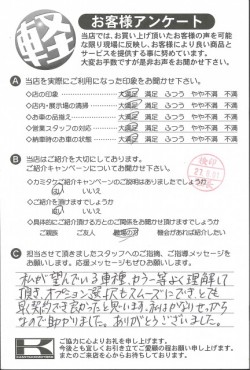 軽
お客様アンケート
当店では、お買い上げ頂いたお客様の声を可能
な限り現場に反映し、お客様により良い商品と
サービスを提供する事に努めています。
大変お手数ですが是非お声をお聞かせ下さい。
A 当店を実際にご利用になった印象をお聞かせ下さい。
◇店の印象 大満足 満足 ふつう やや不満 不満
◇店内・展示場の清掃 大満足 満足 ふつう やや不満 不満
◇お車の品揃え 大満足 満足 ふつう やや不満 不満
◇営業スタッフの対応 大満足 満足 ふつう やや不満 不満
◇納車時のお車の状態 大満足 満足 ふつう やや不満 不満
B 当店はご紹介を大切にしております。
ご紹介キャンペーンについてお聞かせ下さい。
◇カミタケご紹介キャンペーンのご説明はありましたでしょうか
はい いいえ
◇ご紹介を頂けますでしょうか
はい いいえ
◇具体的にご紹介頂ける方とのご関係をお聞かせ頂けますでしょうか
ご親族 ご友人 職場の方 機会があれば紹介したい
C 担当させて頂きましたスタッフへのご指摘、ご指導メッセージを
お願いします。応援メッセージもぜひお願いします。
私が望んでいる車種、カラー等よく理解して
頂き、オプション選択もスムーズにでき、とても
良い契約ができ良かったと思います。私はかなりせっかち
なので助かりました。ありがとうございました。
K
ご協力に心よりお礼を申し上げます。
今後とも宜しくお引き立てご愛顧の程お願い申し上げます。
またのご来店を心からお待ちしております。